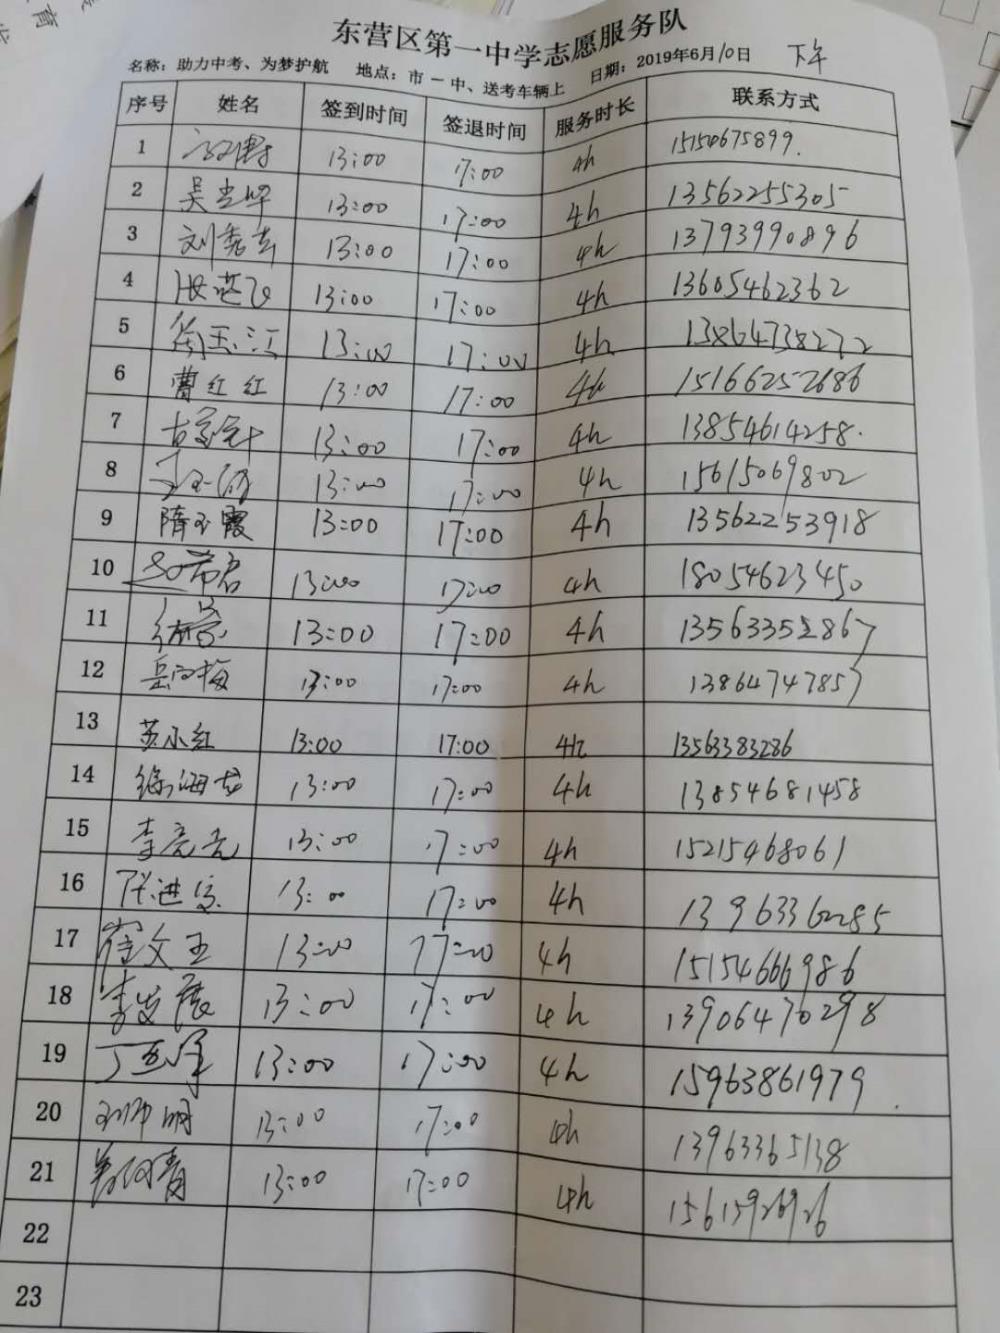 东营区第一中学志愿服务队
名称：助力中考、为梦护航 地点：市一中、送考车辆上 日期：2019年6月10日 下午
序号 姓名 签到时间 签退时间 服务时长 联系方式
1 13:00 17:00 4h
2 13:00 17:00 4h 13562255305
3 13:00 17:00 4h 13793990896
4 13:00 17:00 4h 13605462362
5 13:00 17:00 4h 13864738272
6 曹红红 13:00 17:00 4h 15166252686
7 13:00 17:00 4h 13854614258.
8 13:00 17:00 4h 15615069802
9 隋玉霞 13:00 17:00 4h 13562253918
10 13:00 17:00 4h 18054623450
11 13:00 17:00 4h 13563352867
12 13:00 17:00 4h 13864747857
13 苏小红 13:00 17:00 4h 13563383286
14 徐海龙 13:00 17:00 4h 13854681458
15 李亮亮 13:00 17:00 4h 15215468061
16 13:00 17:00 4h 13963362285
17 崔文玉 13:00 17:00 4h 15154666986
18 李发展 13:00 17:00 4h 13906470298
19 13:00 17:00 4h 15963861979
20 13:00 17:00 4h 13963365138
21 13:00 17:00 4h 15615926926
22
23